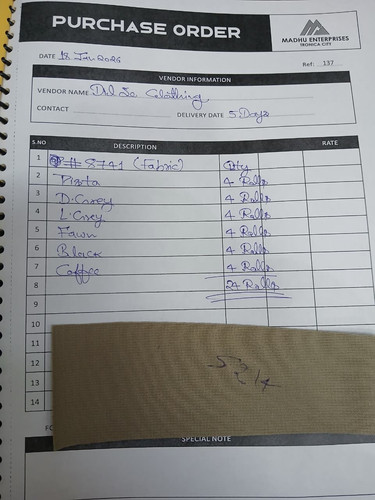 PURCHASE ORDER
MADHU ENTERPRISES
TRONICA CITY
DATE 18 Jan 2026
Ref: 137
VENDOR INFORMATION
VENDOR NAME Dil Se Clothing
CONTACT
DELIVERY DATE 5 Days
S.NO DESCRIPTION RATE
1 # 8741 (Fabric) Qty
2 Pista 4 Rolls
3 D. Grey 4 Rolls
4 L. Grey 4 Rolls
5 Fawn 4 Rolls
6 Black 4 Rolls
7 Coffee 4 Rolls
8 24 Rolls
9
10
11
12
13
14
SPECIAL NOTE